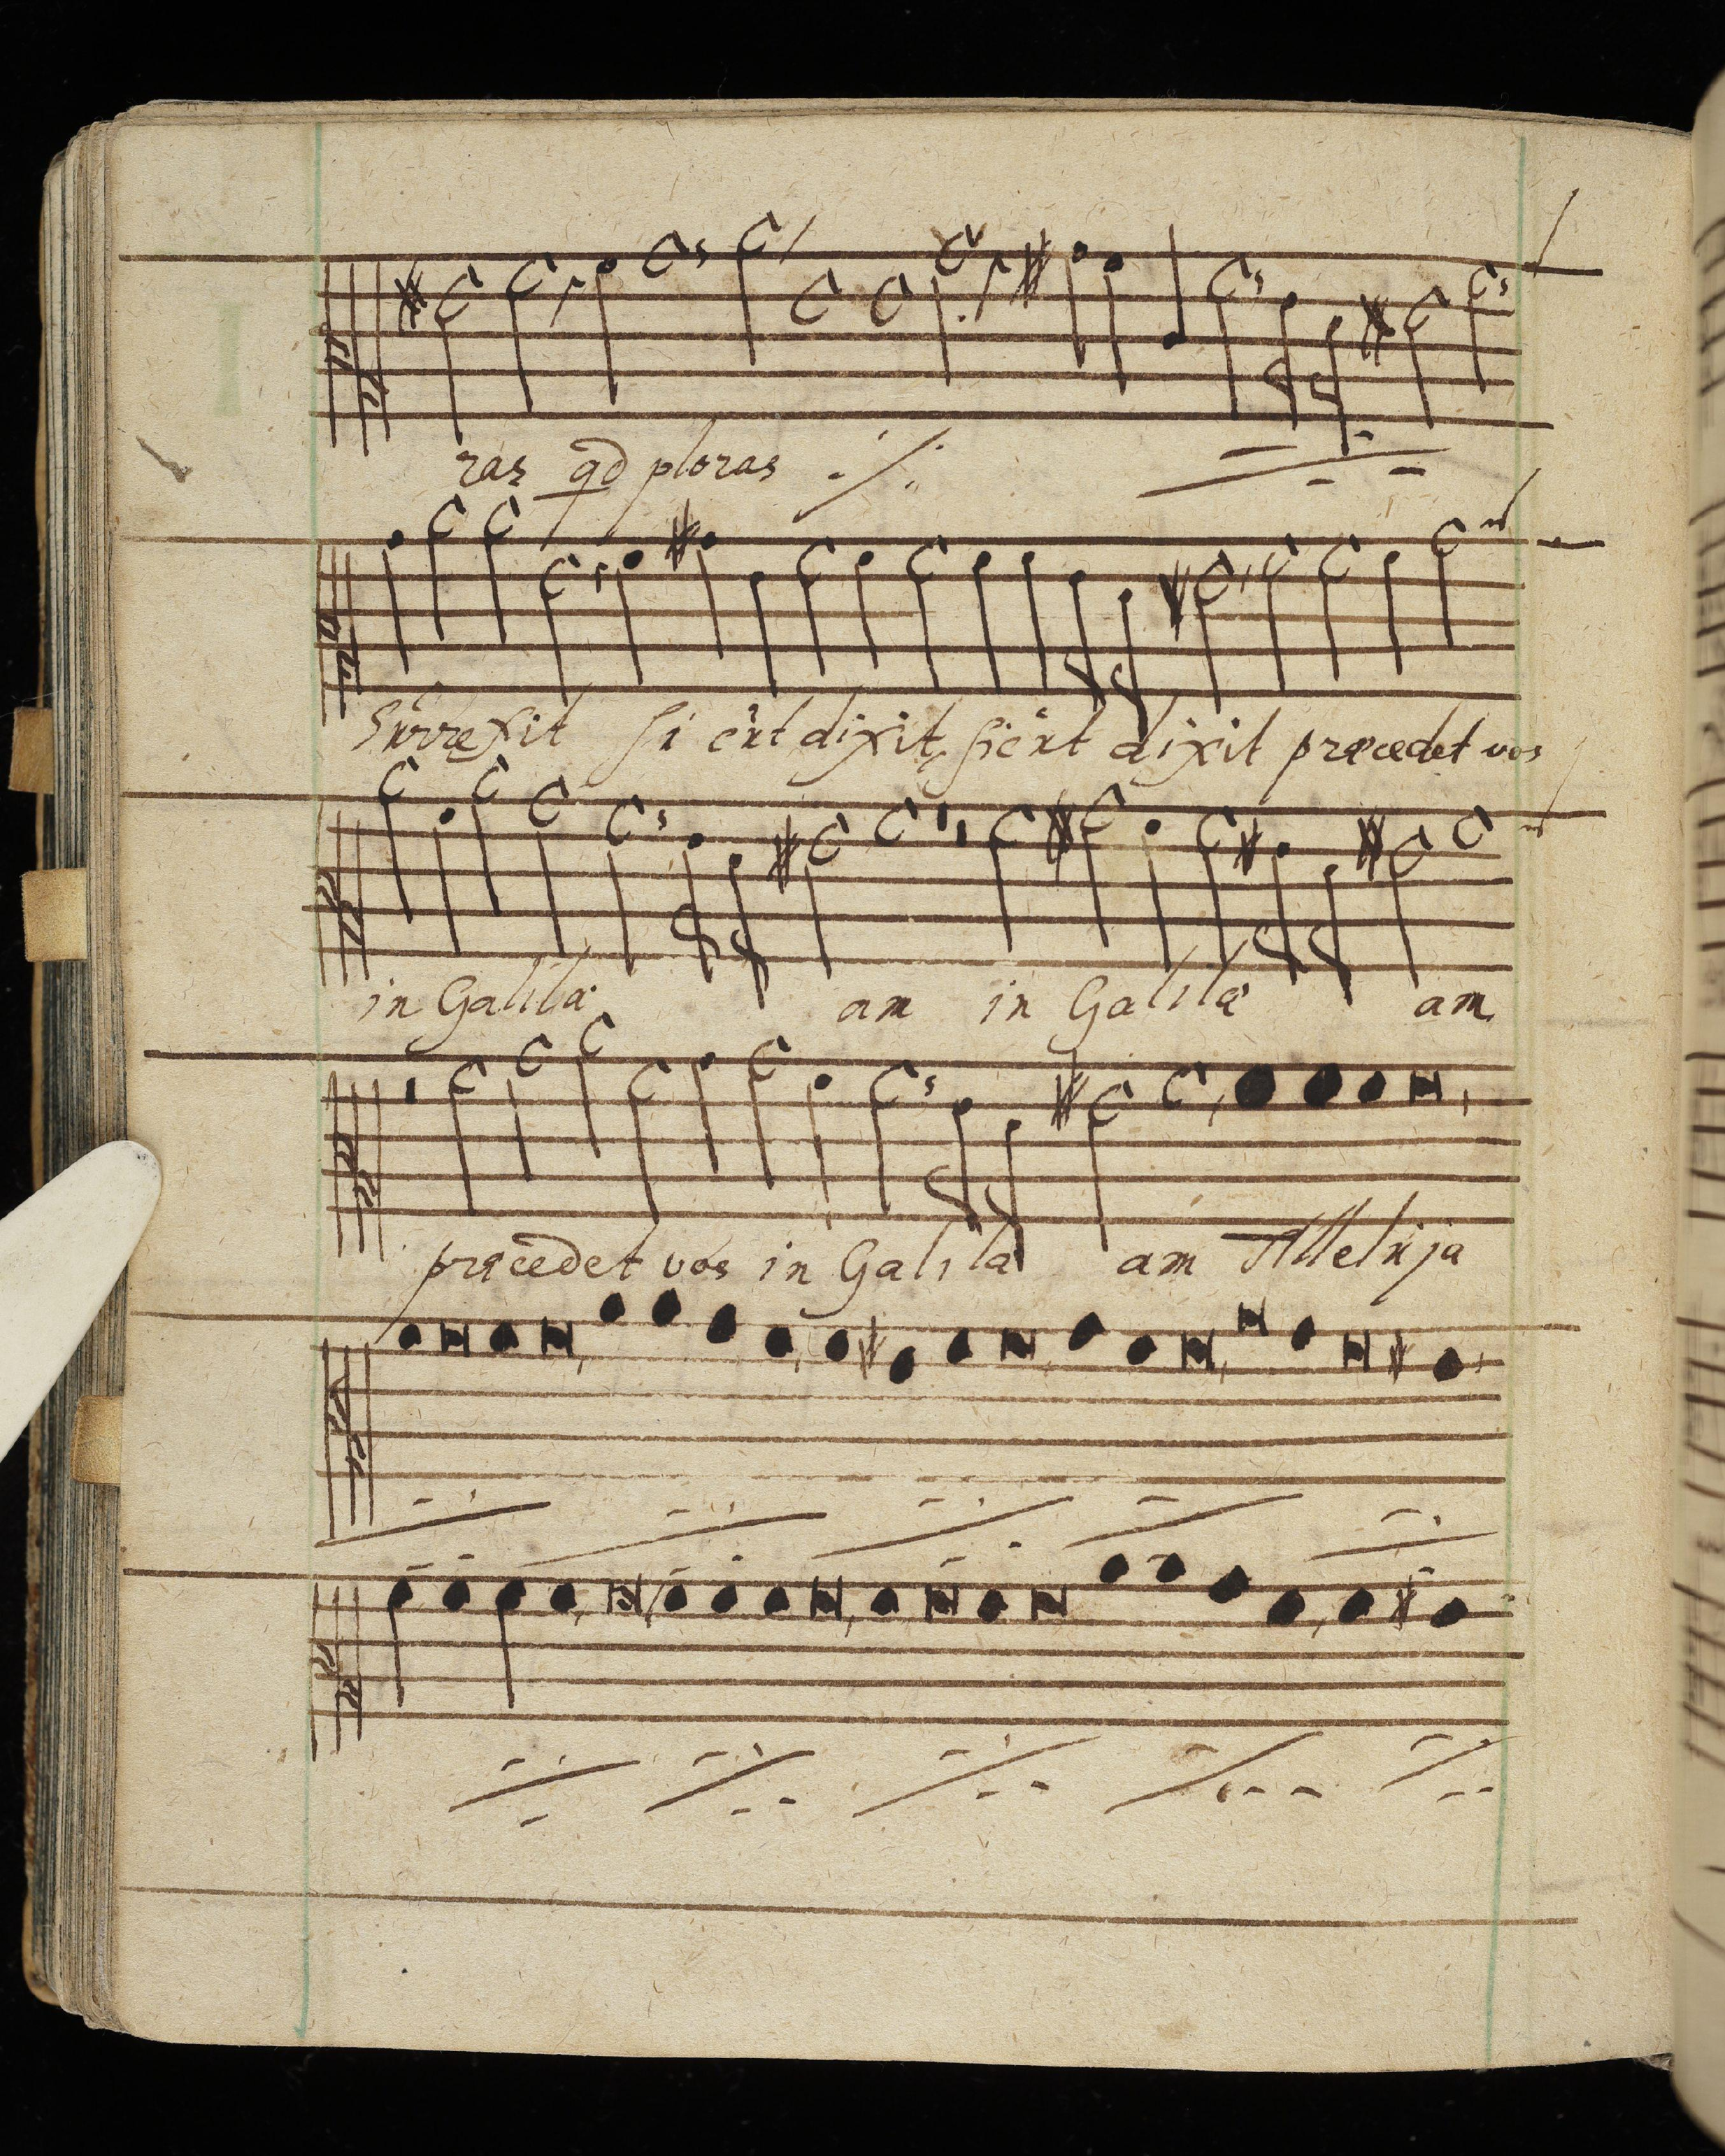 ras qd ploras
Surrexit si cut dixit, sicut dixit præcedet vos
in Galilæ am in Galilæ am
præcedet vos in Galilæ am Alleluja